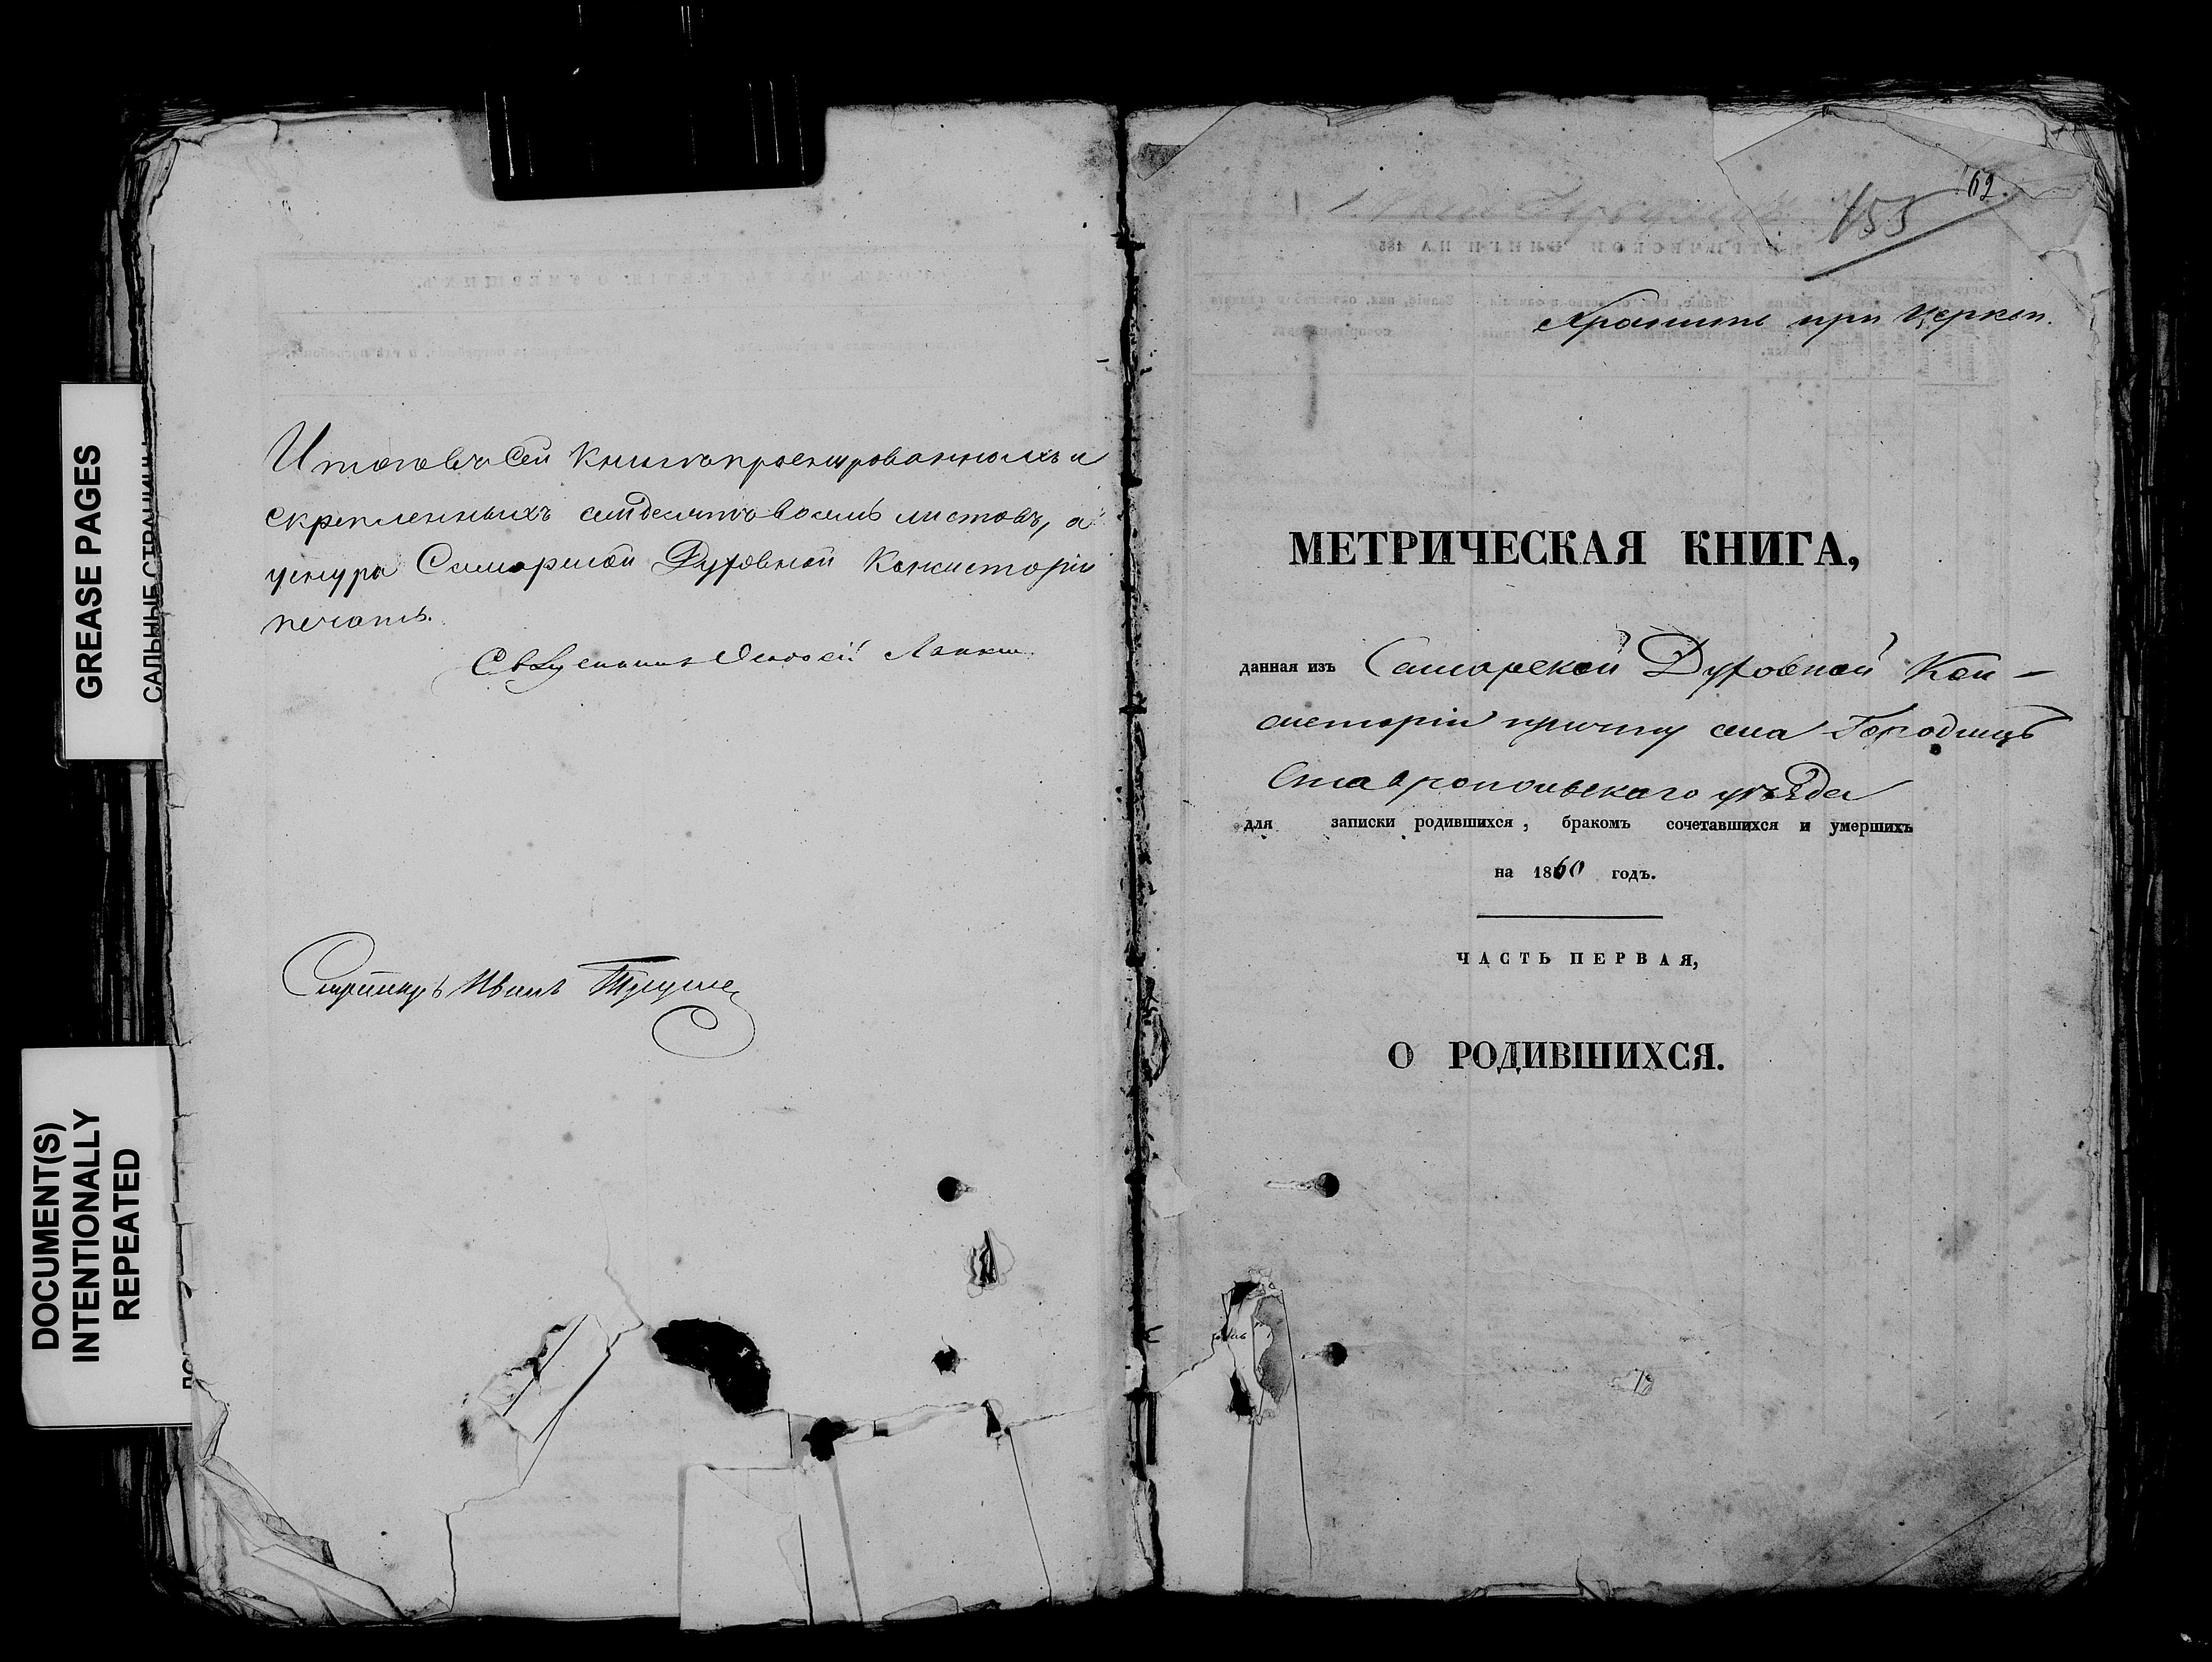 GREASE PAGES
САЛЬНЫЕ СТРАНИЦЫ
DOCUMENT(S)
INTENTIONALLY
REPEATED
Итого въ сей книге прошнурованныхъ и
скрепленныхъ семдесятъ восемь листовъ, а
у шнура Самарской Духовной Консисторіи
печать.
Священникъ Лапкин
Иванъ
62
155
Хранить при Церкви.
МЕТРИЧЕСКАЯ КНИГА,
данная изъ Самарской Духовной Кон-
систоріи причту села Городищъ
Ставропольскаго уѣзда
для записки родившихся, бракомъ сочетавшихся и умершихъ
на 1860 годъ.
ЧАСТЬ ПЕРВАЯ,
О РОДИВШИХСЯ.